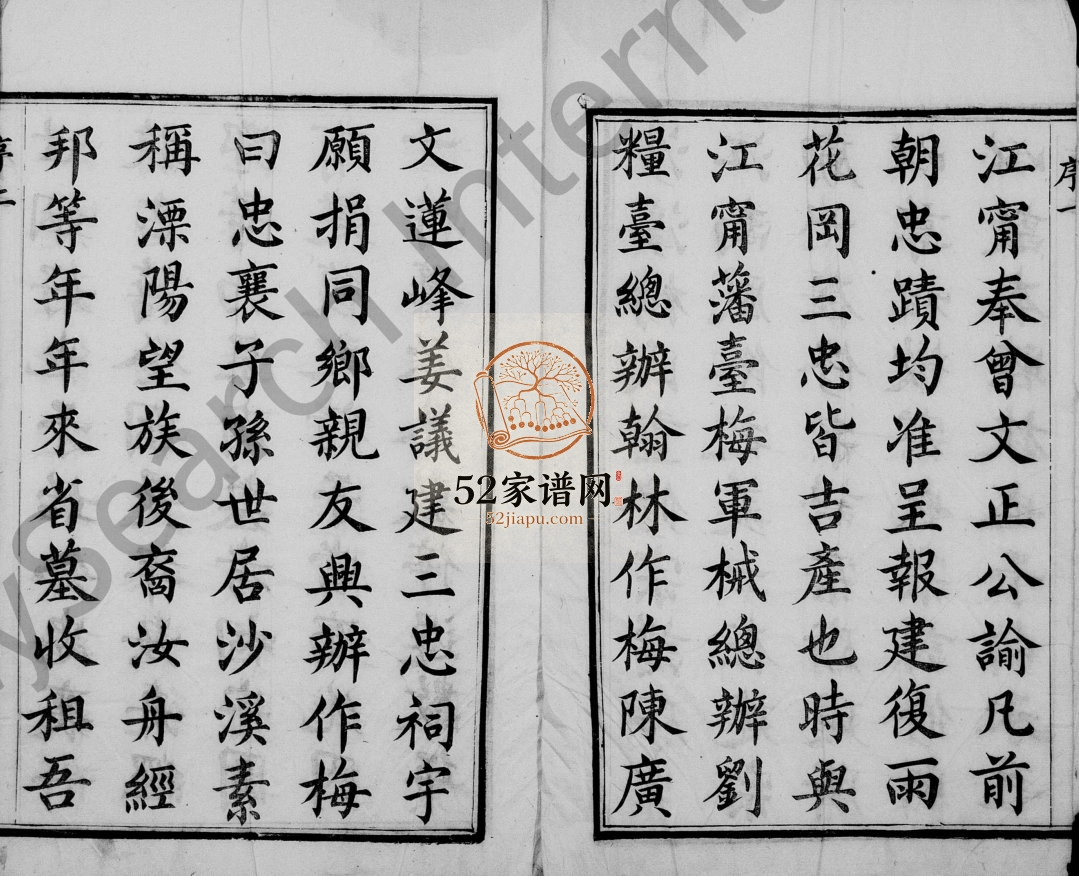 序一
江甯奉曾文正公諭凡前
朝忠蹟均准呈報建復雨
花岡三忠皆吉產也時與
江甯藩臺梅軍械總辦劉
糧臺總辦翰林作梅陳廣
文蓮峰姜議建三忠祠宇
願捐同鄉親友興辦作梅
曰忠襄子孫世居沙溪素
稱溧陽望族後裔汝舟經
邦等年年來省墓收租吾
52家谱网
52jiapu.com
MySearch Internat